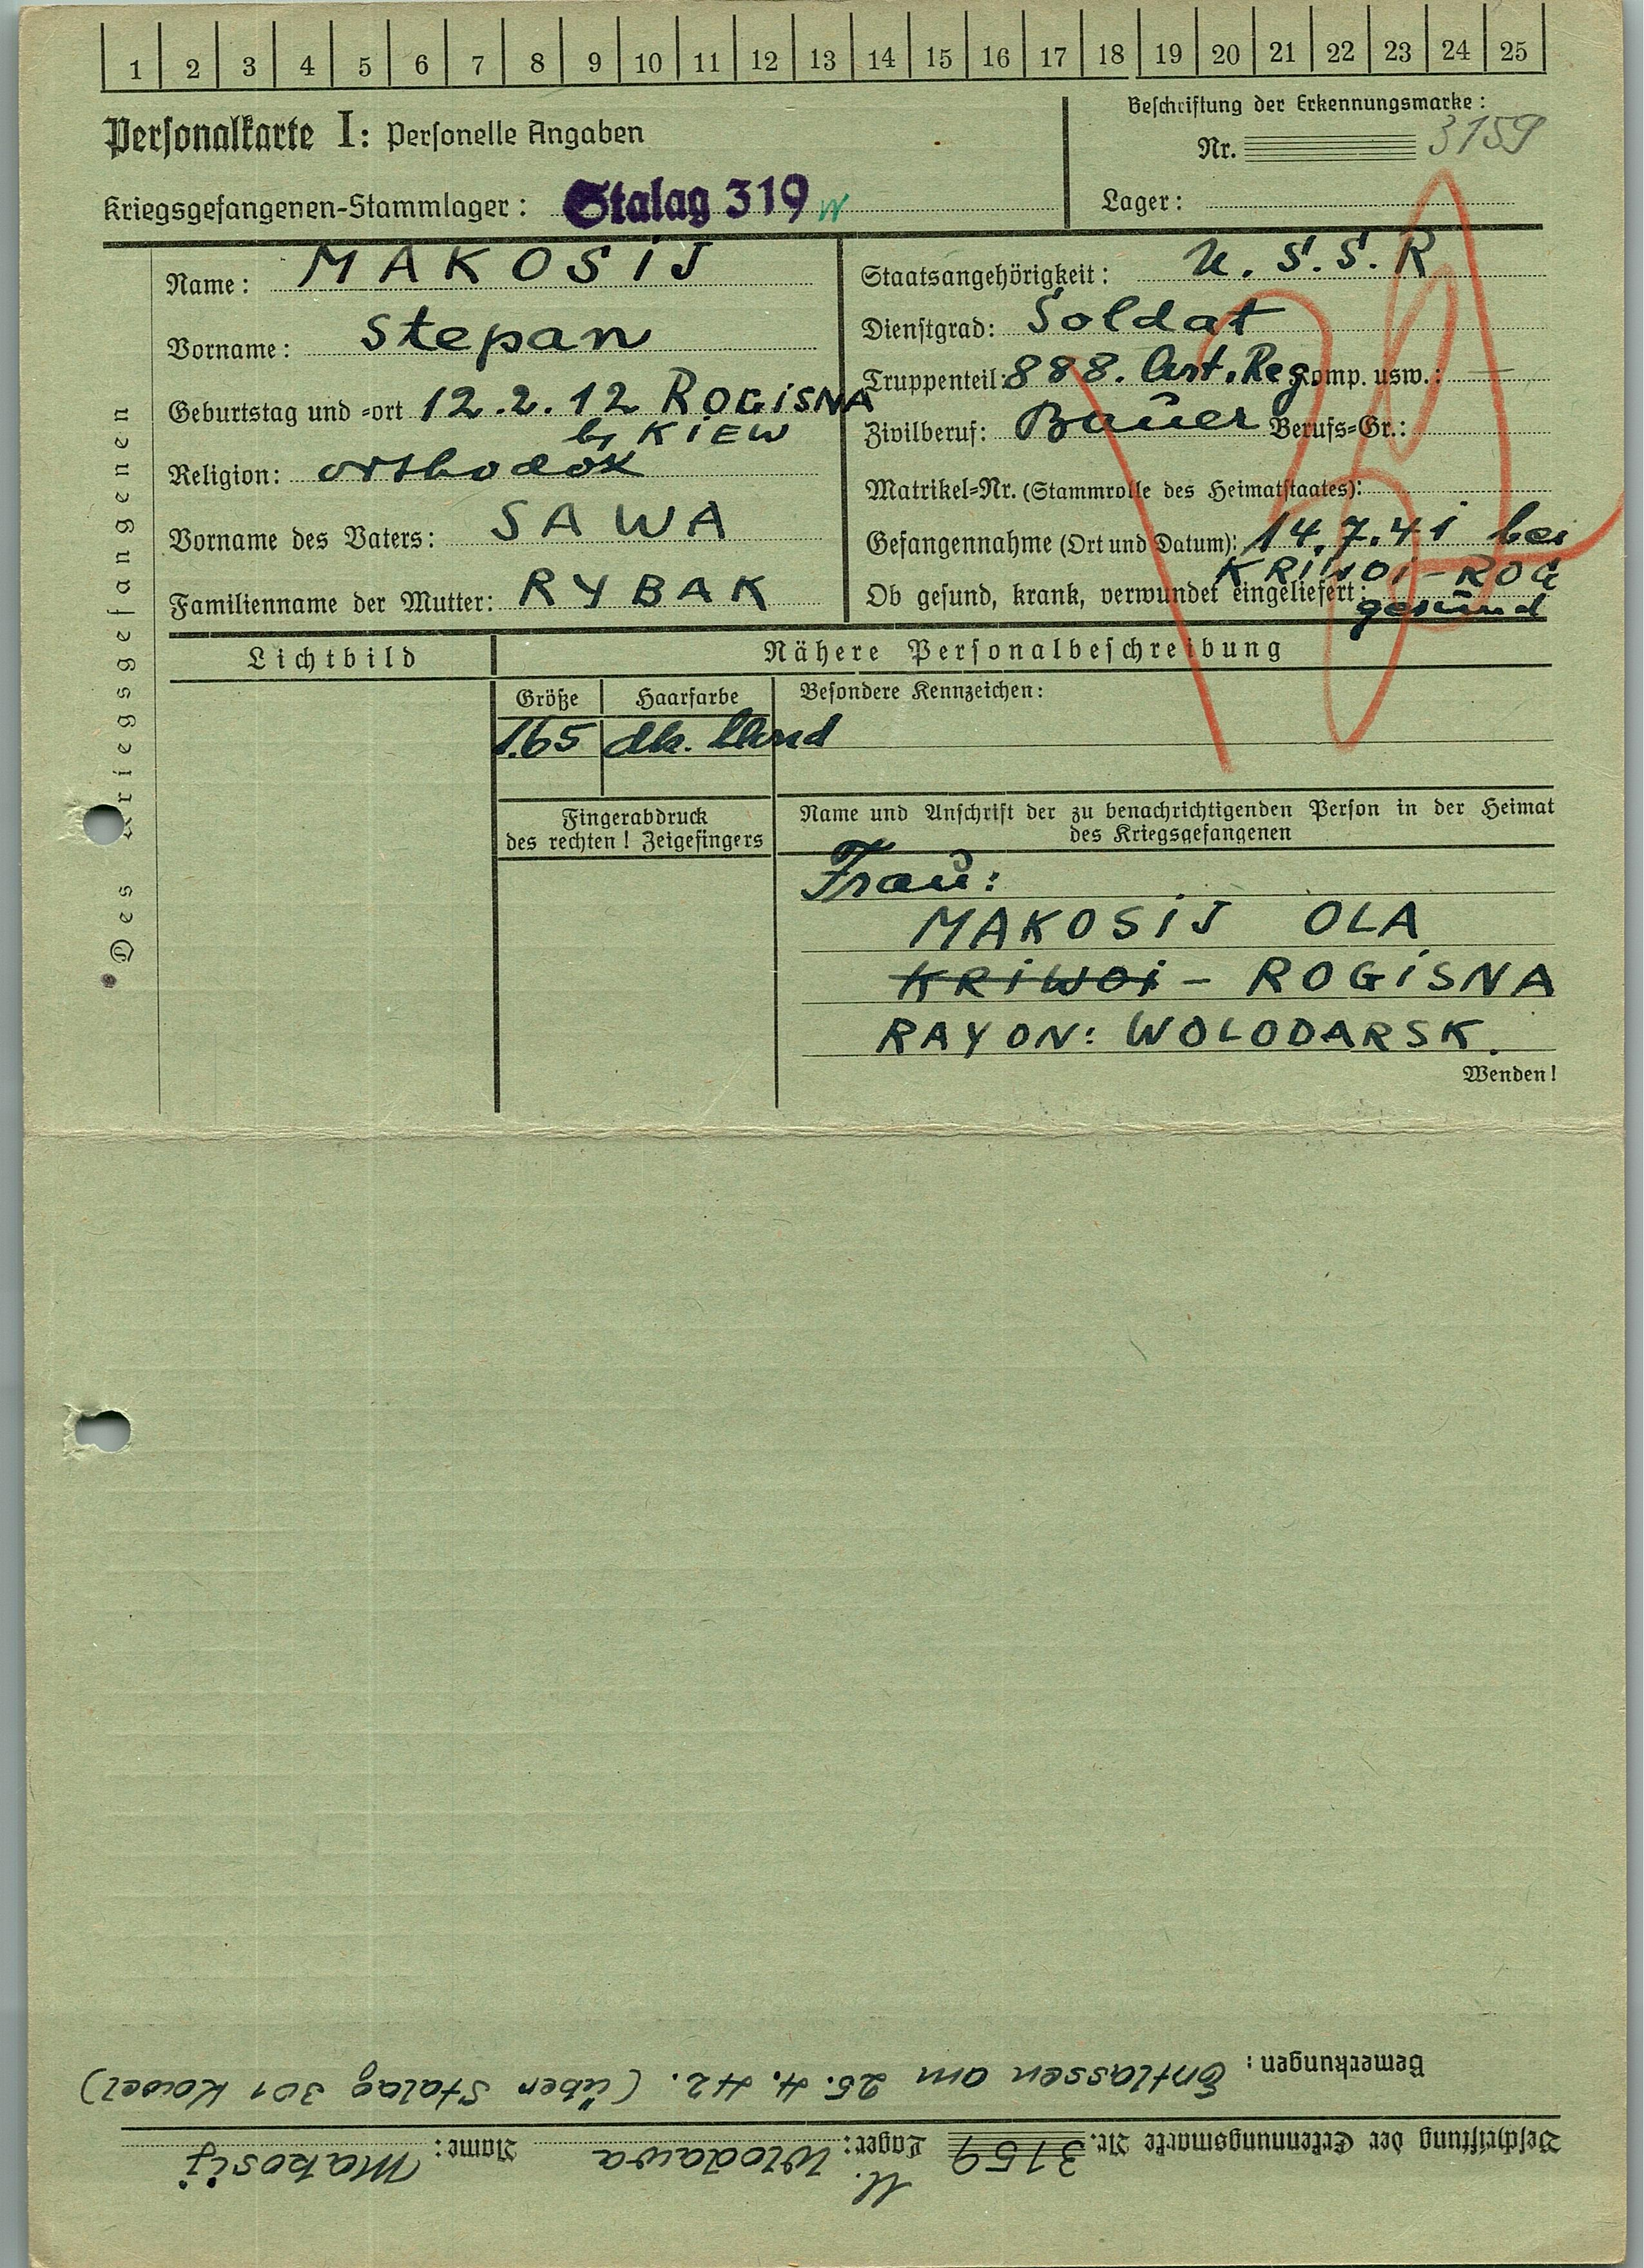 1 2 3 4 5 6 7 8 9 10 11 12 13 14 15 16 17 18 19 20 21 22 23 24 25
Personalkarte I: Personelle Angaben
Beschriftung der Erkennungsmarke:
Nr. 3159
Kriegsgefangenen-Stammlager: Stalag 319
Lager:
Des Kriegsgefangenen
Name: MAKOSIJ
Vorname: Stepan
Geburtstag und -ort 12.2.12 ROGISNA
b/ KIEW
Religion: orthodox
Vorname des Vaters: SAWA
Familienname der Mutter: RYBAK
Staatsangehörigkeit: U.S.S.R
Dienstgrad: Soldat
Truppenteil: 888. Art. Reg Komp. usw.: —
Zivilberuf: Bauer Berufs-Gr.:
Matrikel-Nr. (Stammrolle des Heimatstaates):
Gefangennahme (Ort und Datum): 14.7.41 bei
KRIWOI-ROG
Ob gesund, krank, verwundet eingeliefert:
gesund
Lichtbild
Nähere Personalbeschreibung
Größe Haarfarbe Besondere Kennzeichen:
1.65 dk. blond
Fingerabdruck
des rechten! Zeigefingers
Name und Anschrift der zu benachrichtigenden Person in der Heimat
des Kriegsgefangenen
Frau:
MAKOSIJ OLA
KRIWOI - ROGISNA
RAYON: WOLODARSK.
Wenden!
Beschriftung der Erkennungsmarke Nr. 3159 Lager: Wlodawa Name: Makosij
Bemerkungen: Entlassen am 25.4.42. (über Stalag 301 Kowel)